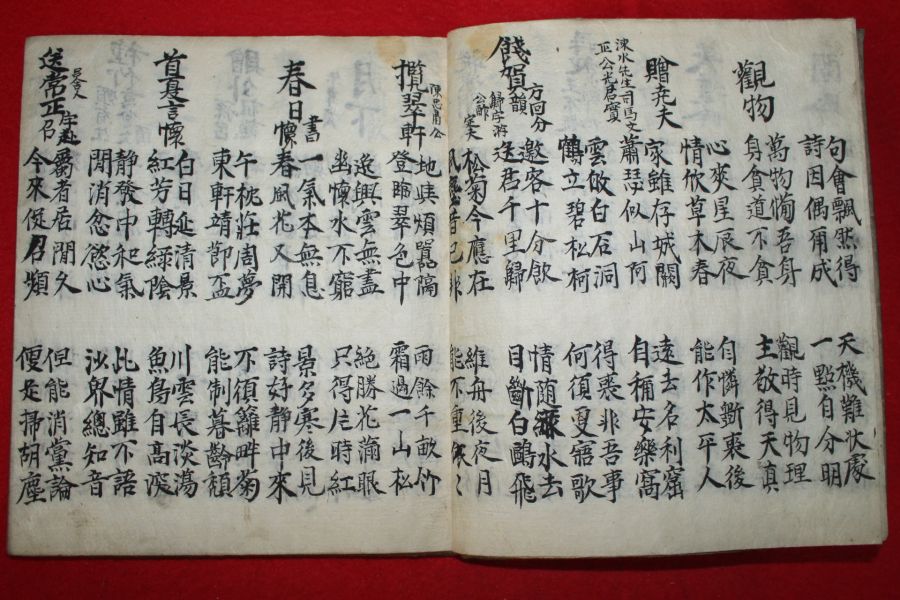 句會飄然得
詩因偶爾成
天機難狀處
一點自分明
觀物
萬物備吾身
身貧道不貧
觀時見物理
主敬得天真
心爽星辰夜
情忺草木春
自憐斲喪後
能作太平人
贈堯夫
涑水先生司馬文
正公光君實
家雖存城闕
蕭瑟似山阿
遠去名利窟
自稱安樂窩
雲收白石洞
鶴立碧松柯
得喪非吾事
何須夏寤歌
餞賀
方回分
韻
歸字游
公酢定夫
邀客十分飲
送君千里歸
情随綠水去
目斷白鷗飛
松菊今應在
風塵昔已非
維舟後夜月
能不重依〻
攬翠軒
陳忠肅公
地與煩囂隔
登臨翠色中
雨餘千畝竹
霜過一山松
逸興雲無盡
幽懷水不窮
絶勝花滿眼
只得片時紅
春日書懷
一氣本無息
春風花又開
景多寒後見
詩好靜中來
午枕莊周夢
東軒靖節盃
不須籬畔菊
能制暮齡頹
首夏言懷
白日延清景
紅芳轉綠陰
川雲長淡蕩
魚鳥自高深
靜發中和氣
閒消忿慾心
此情雖不語
沙界總知音
送常正
者居閒久
今來促召頻
但能消黨論
便足掃胡塵